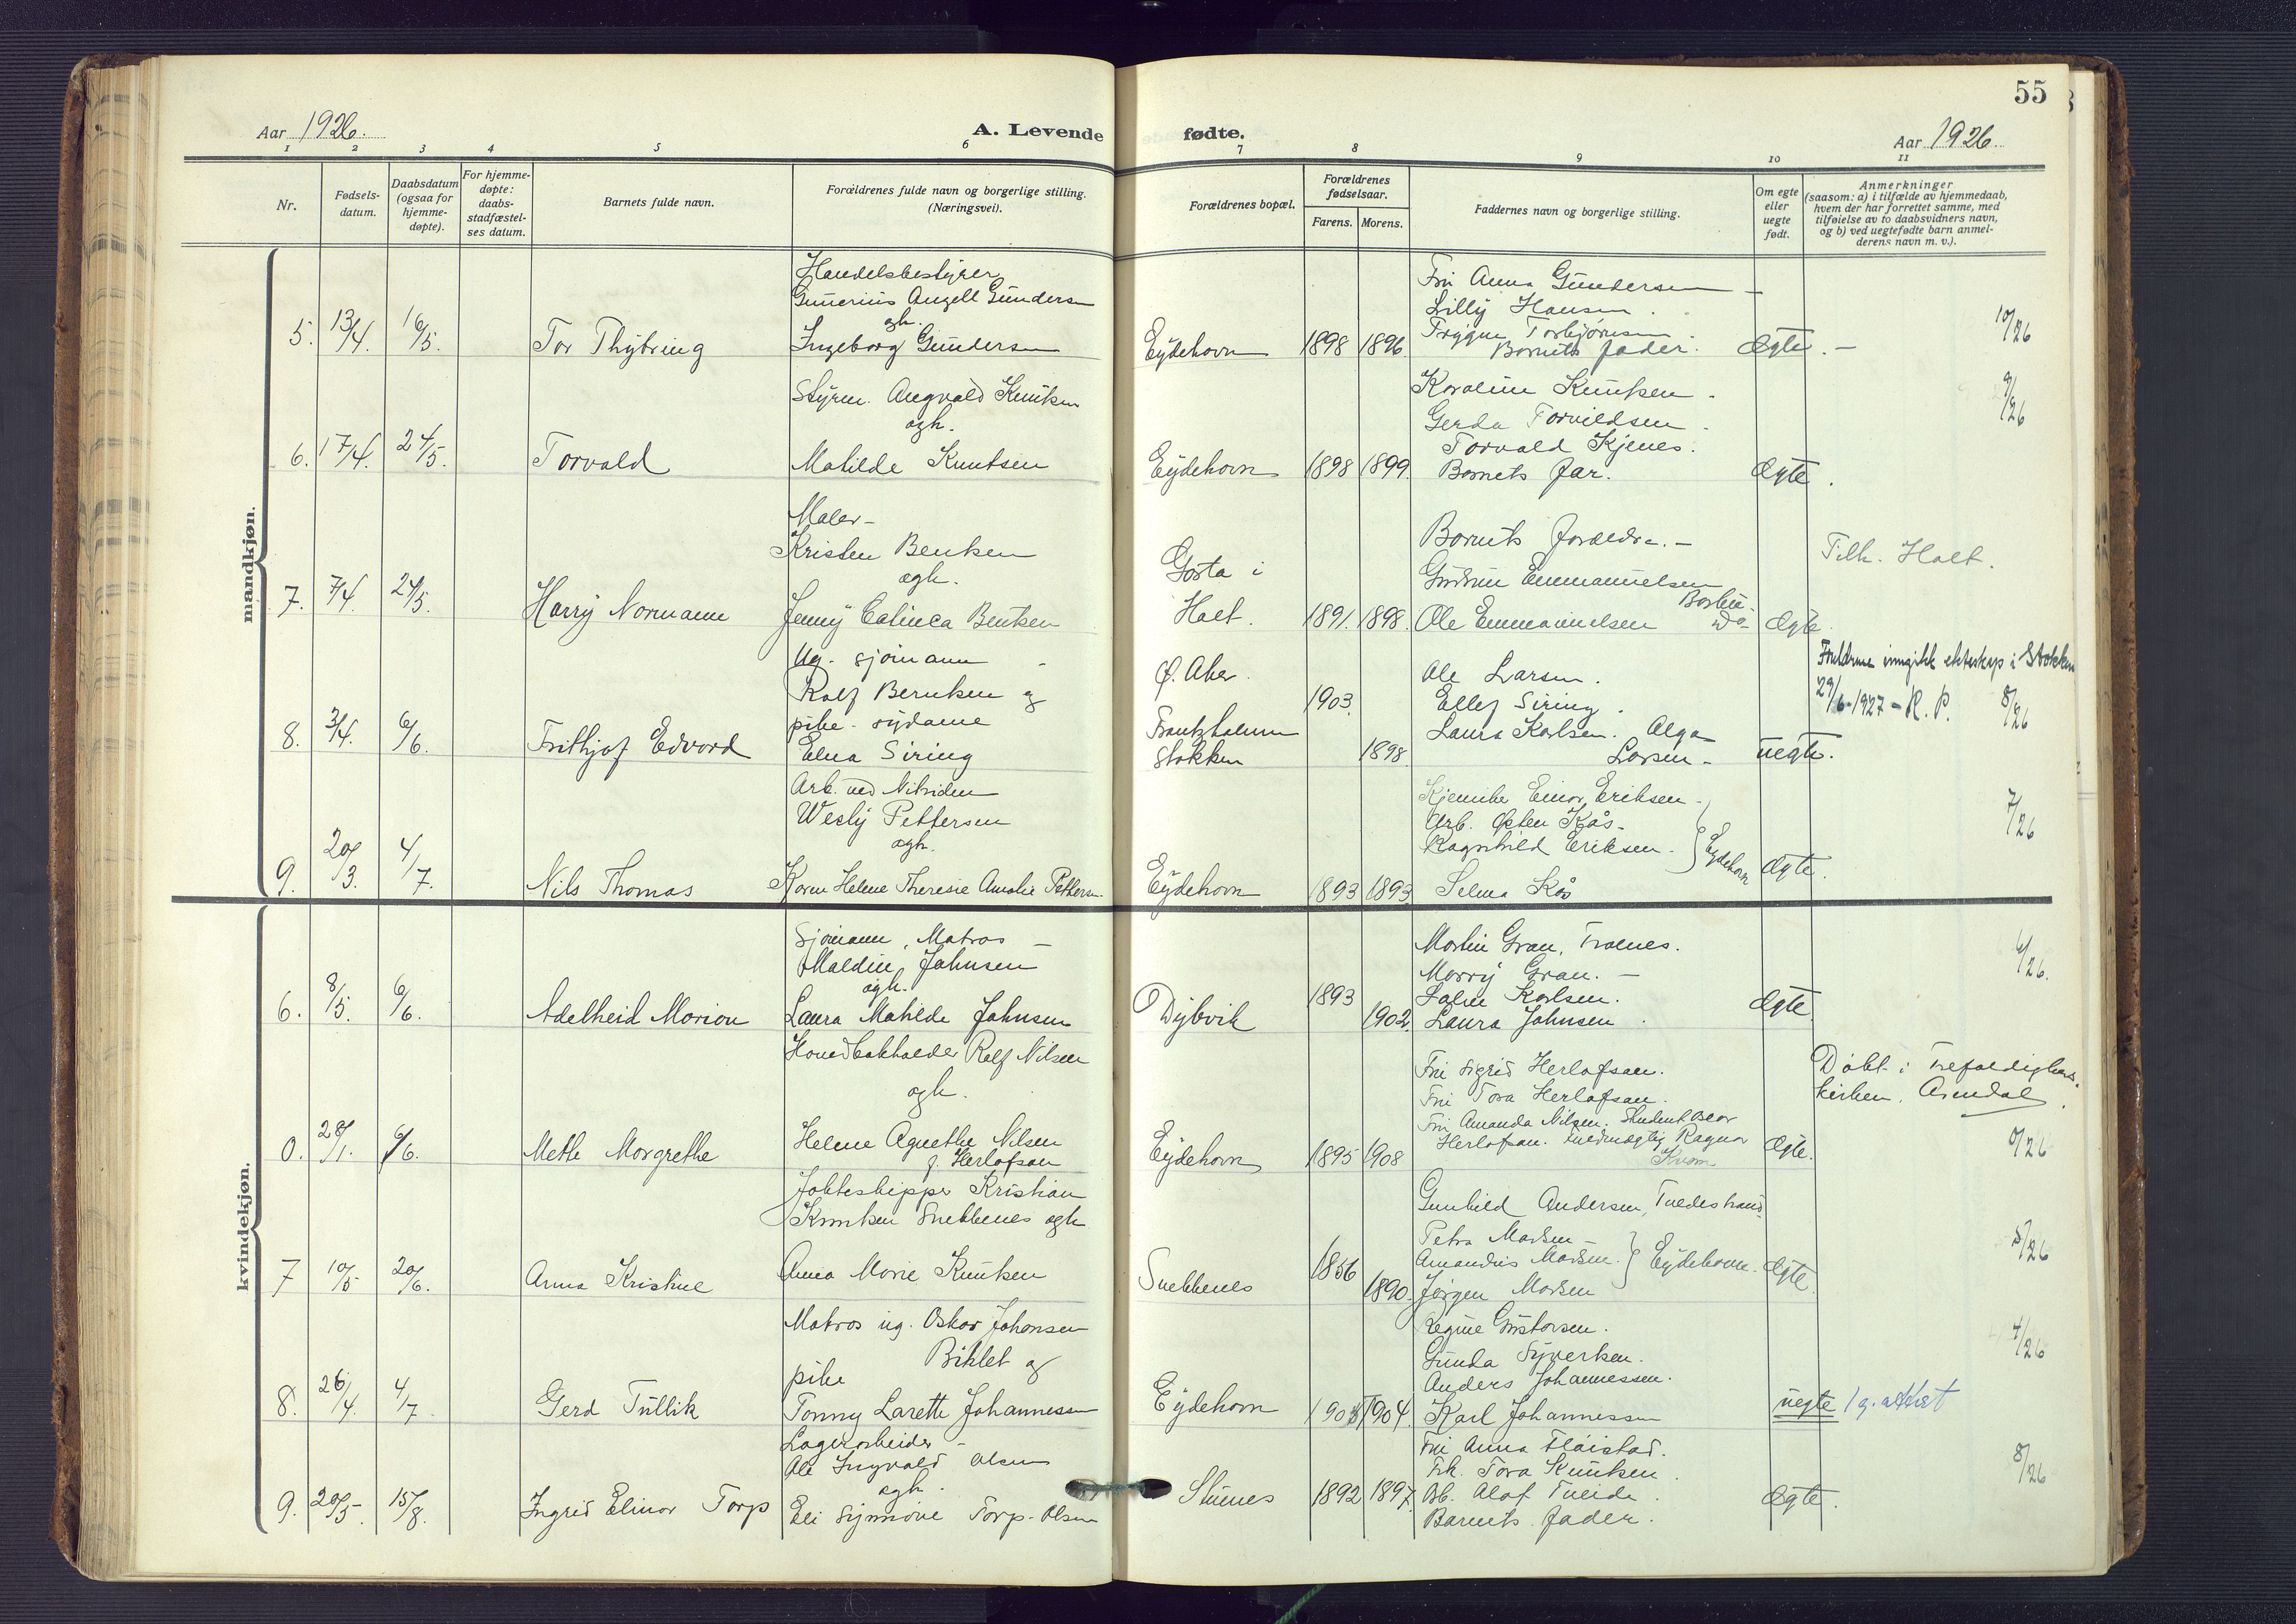 55
Aar 1926.
A. Levende fødte.
Aar 1926.
1 2 3 4 5 6 7 8 9 10 11
Nr.
Fødsels-
datum.
Daabsdatum
(ogsaa for
hjemme-
døpte).
For hjemme-
døpte:
daabs-
stadfæstel-
ses datum.
Barnets fulde navn.
Forældrenes fulde navn og borgerlige stilling.
(Næringsvei).
Forældrenes bopæl.
Forældrenes
fødselsaar.
Farens. Morens.
Faddernes navn og borgerlige stilling.
Om egte
eller
uegte
født.
Anmerkninger
(saasom: a) i tilfælde av hjemmedaab,
hvem der har forrettet samme, med
tilføielse av to daabsvidners navn,
og b) ved uegtefødte barn anmel-
derens navn m. v.).
mandkjøn.
5. 13/4. 16/5. Tor Thybring
Handelsbestyrer
Gunerius Angell Gundersen
ogh.
Ingeborg Gundersen
Eydehavn 1898 1896
Fru Anna Gundersen
Lilly Hansen.
Trygve Torbjørnsen
Barnets fader.
Ægte. 10/26
6. 17/4. 24/5. Torvald
Styrm. Angvald Knutsen
ogh.
Matilde Knutsen
Eydehavn 1898 1899.
Karoline Knutsen.
Gerda Torvildsen.
Torvald Kjenes.
Barnets far.
Ægte. 9/26
7. 7/4. 24/5. Harry Normann
Maler
Kristen Bentsen
ogh.
Jenny Calinca Bentsen
Gosta i
Holt. 1891. 1898.
Barnets forældre.
Gudrun Emmanuelsen
Ole Emmanuelsen
Ægte.
Tilh. Holt.
8. 3/4. 6/6. Frithjof Edvard
Ug. sjømann
Rolf Berntsen og
pike - sydame
Elna Siring
Ø. Aker.
Frantzholmen
Stokken
1903.
1898.
Ole Larsen.
Ellef Siring.
Laura Karlsen. Olga
Larsen
uegte.
Foreldrene inngikk ekteskap i Stokken
29/6-1927 - R. P. 8/26
9. 20/3. 4/7. Nils Thomas
Arb. ved Nitriden
Wesly Pettersen
ogh.
Karen Helene Theresie Amalie Pettersen
Eydehavn 1893 1893
Einar Eriksen
Arb. Østen Kås
Ragnhild Eriksen.
Selma Kås
Eydehavn
Ægte. 7/26
kvindekjøn.
6. 8/5. 6/6. Adelheid Marion
Sjømann, Matros
Maldin Johnsen
ogh.
Laura Matilde Johnsen
Dybvik 1893
1902.
Martin Gran,
Marry Gran.
Karlsen.
Laura Johnsen.
Ægte. 6/26.
0. 28/1. 6/6. Mette Margrethe
Hovedbokholder Rolf Nilsen
ogh.
Helene Agnethe Nilsen
f. Herlofsen
Eydehavn 1895 1908
Fru Sigrid Herlofsen.
Fru Tora Herlofsen.
Fru Amanda Nilsen. Student Oscar
Herlofsen. Fuldmægtig Ragnar
Kvam
Ægte.
Døbt i Trefoldighets-
kirken, Arendal.
0/26
7 10/5 20/6. Anna Kristine
Jakteskipper Kristian
Knutsen Snekkenes ogh
Anna Marie Knutsen
Snekkenes 1856
1890.
Gunhild Andersen, Tvedestrand
Petra Madsen
Amandus Madsen.
Jørgen Madsen
Eydehavn.
Ægte. 5/26
8. 26/4. 4/7. Gerd Tullik
Matros ug. Oskar Johansen
Biklet og
pike
Tonny Larette Johannessen
Eydehavn 1903 1904.
Regine Gustavsen.
Gunda Syvertsen.
Anders Johannessen.
Karl Johannessen
uegte
4/26
9. 20/5 15/8. Ingrid Elinor Torp
Lagerarbeider
Ole Ingvald Olsen
ogh.
Eli Synnøve Torp-Olsen
Stuenes 1892 1897.
Fru Anna Fløistad.
Frk. Tora Knutsen.
Olaf Tveide.
Barnets fader.
Ægte. 8/26